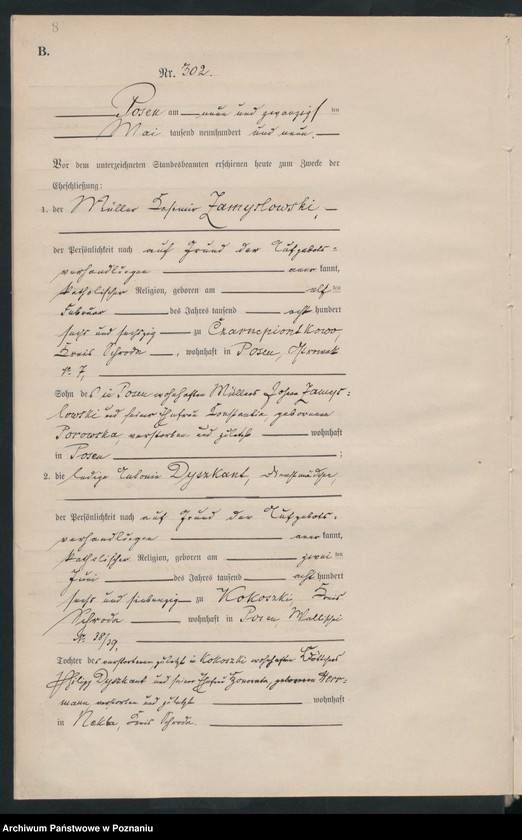 8
B.
Nr. 302.
Posen am neun und zwanzigsten
Mai tausend neunhundert und neun.
Vor dem unterzeichneten Standesbeamten erschienen heute zum Zwecke der
Eheschließung:
1. der Müller Kasimir Zamyslowski,
der Persönlichkeit nach auf Grund der Aufgebots-
verhandlungen anerkannt,
katholischer Religion, geboren am elften
Februar des Jahres tausend acht hundert
sechs und sechzig zu Czarnepiontkowo,
Kreis Schroda, wohnhaft in Posen,
Nr. 7,
Sohn des in Posen wohnhaften Müllers Johann Zamys-
lowski und seiner Ehefrau Konstantia, geborenen
Porowska, verstorben und zuletzt wohnhaft
in Posen ;
2. die ledige Antonie Dyszkant, Dienstmädchen
der Persönlichkeit nach auf Grund der Aufgebots-
verhandlungen anerkannt,
katholischer Religion, geboren am zweiten
Juni des Jahres tausend acht hundert
sechs und siebenzig zu Kokoszki, Kreis
Schroda, wohnhaft in Posen, Wallischei
Nr. 38/39,
Tochter des verstorbenen, zuletzt in Kokoszki wohnhaften
Philipp Dyszkant und seiner Ehefrau Honorata, geborenen
mann verstorben und zuletzt wohnhaft
in Nekla, Kreis Schroda.
Archiwum Państwowe w Poznaniu